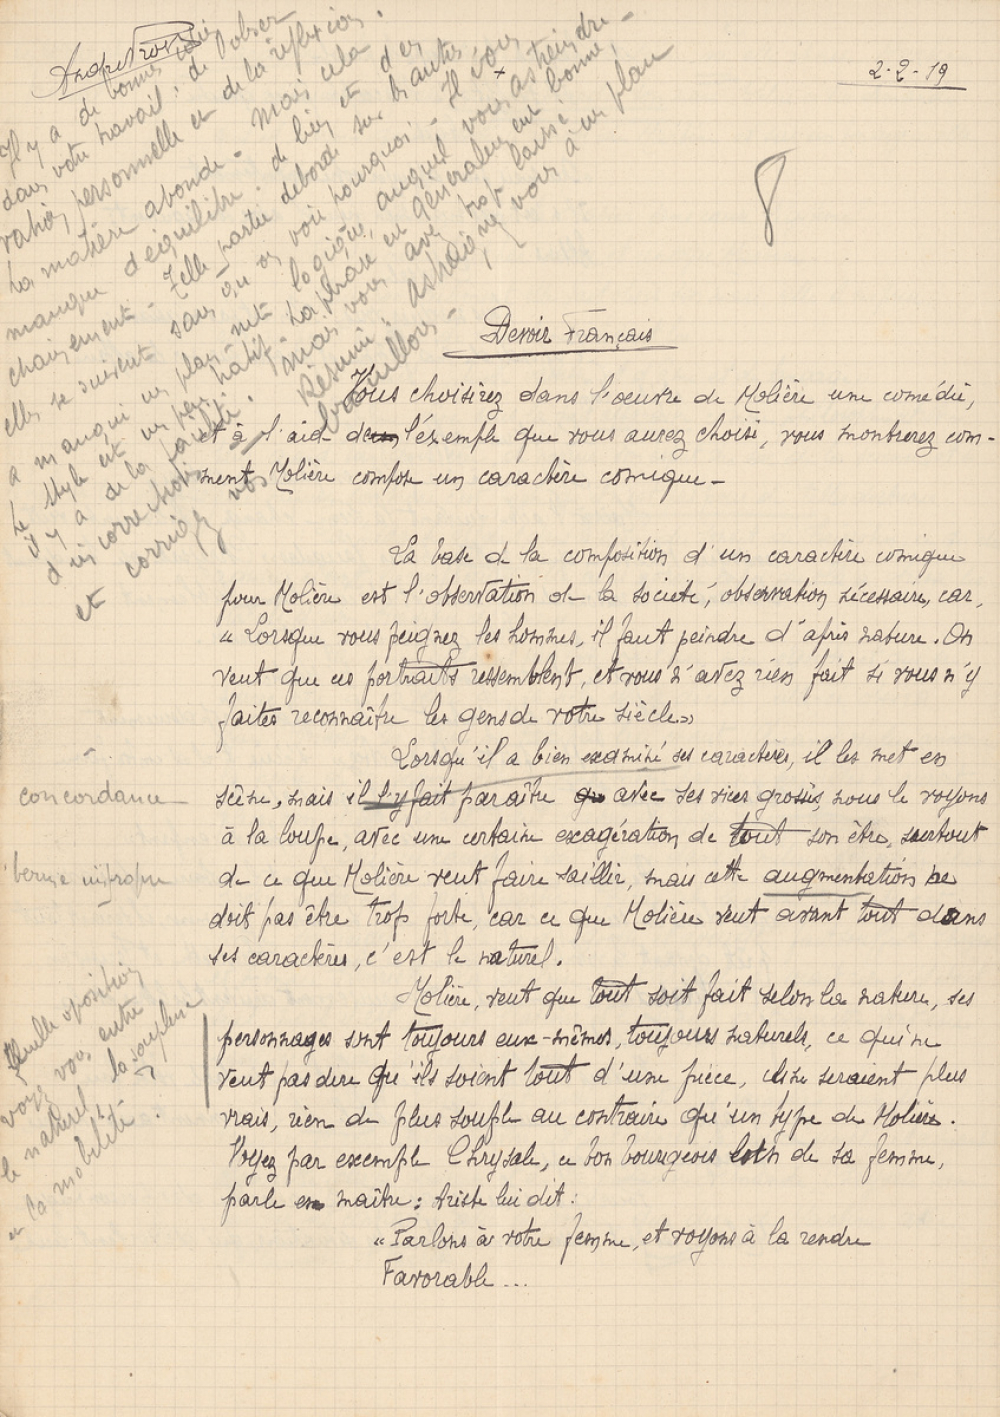 2-2-19
8
Il y a de bonnes idées
dans votre travail, de l'obser
vation personnelle et de la réflexion.
La matière abonde - Mais cela
manque d'équilibre, de lien et d'en
chaînement - Telle partie déborde sur les autres
elles se suivent sans qu'on voie pourquoi - Il vous
a manqué un plan net, logique, auquel vous astreindre -
Le style est un peu hâtif - La phrase est généralement bonne,
il y a de la facilité. Mais vous avez trop laissé
d'incorrections. Résumé : astreignez vous à un plan
et corrigez vos brouillons -
Devoir Français
Vous choisirez dans l'oeuvre de Molière une comédie,
et à l'aide de l'exemple que vous aurez choisi, vous montrerez com-
ment Molière compose un caractère comique -
La base de la composition d'un caractère comique
pour Molière est l'observation de la société, observation nécessaire, car,
« Lorsque vous peignez les hommes, il faut peindre d'après nature. On
veut que ces portraits ressemblent, et vous n'avez rien fait si vous n'y
faites reconnaître les gens de votre siècle »
Lorsqu'il a bien examiné ses caractères, il les met en
concordance
scène, mais il l'y fait paraître avec ses vices grossis, nous le voyons
à la loupe, avec une certaine exagération de tout son être, surtout
terme impropre
de ce que Molière veut faire saillir, mais cette augmentation ne
doit pas être trop forte, car ce que Molière veut avant tout dans
ses caractères, c'est le naturel.
Molière, veut que tout soit fait selon la nature, ses
quelle opposition
voyez vous entre
le naturel et la souplesse
et la mobilité ?
personnages sont toujours eux-mêmes, toujours naturels, ce qui ne
veut pas dire qu'ils soient tout d'une pièce, ils ne seraient plus
vrais, rien de plus souple au contraire qu'un type de Molière.
Voyez par exemple Chrysale, ce bon bourgeois loin de sa femme,
parle en maître : Ariste lui dit :
« Parlons à votre femme, et voyons à la rendre
Favorable ...